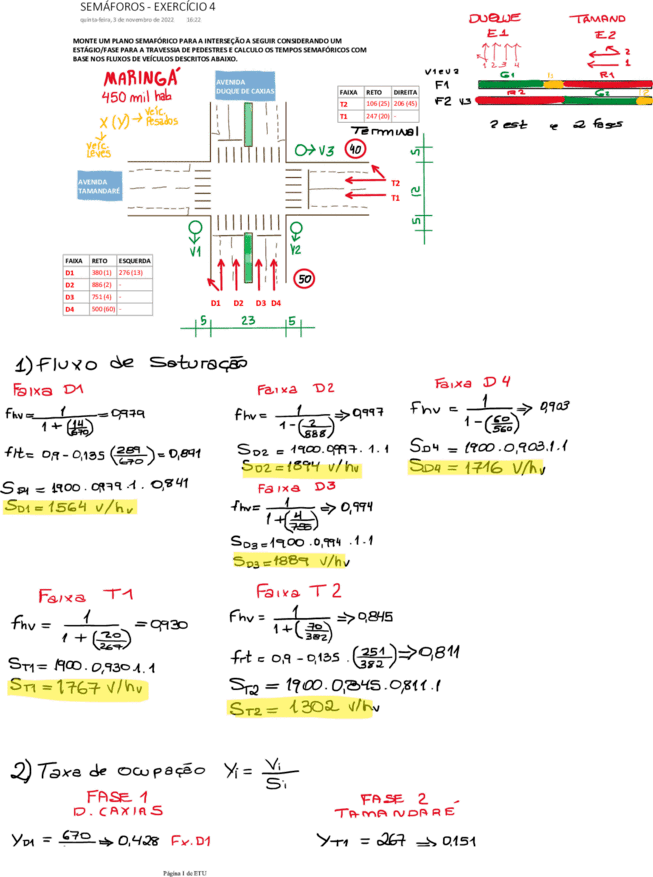 SEMÁFOROS - EXERCÍCIO 4
quinta-feira, 3 de novembro de 2022 16:22
MONTE UM PLANO SEMAFÓRICO PARA A INTERSEÇÃO A SEGUIR CONSIDERANDO UM
ESTÁGIO/FASE PARA A TRAVESSIA DE PEDESTRES E CALCULO OS TEMPOS SEMAFÓRICOS COM
BASE NOS FLUXOS DE VEÍCULOS DESCRITOS ABAIXO.
DUQUE TAMAND
E1 E2
1 2 3 4
2
1
V1 e V2
F1 G1 R1
F2 V3 R2 G2
2 est e 2 fases
MARINGÁ
450 mil hab
X (Y) → veíc. Pesados
veíc. LEVES
AVENIDA
DUQUE DE CAXIAS
FAIXA RETO DIREITA
T2 106 (25) 206 (45)
T1 247 (20) -
Terminal
V3 40
5
12
5
AVENIDA
TAMANDARÉ
T2
T1
V1 V2
FAIXA RETO ESQUERDA
D1 380 (1) 276 (13)
D2 886 (2) -
D3 751 (4) -
D4 500 (60) -
50
D1 D2 D3 D4
5 23 5
1) Fluxo de Saturação
Faixa D1
fhv = 1 / 1 + (14/670) = 0,979
flt = 0,9 - 0,135 (289/670) = 0,841
SD1 = 1900 . 0,979 . 1 . 0,841
SD1 = 1564 v/hv
Faixa D2
fhv = 1 / 1 - (2/888) => 0,997
SD2 = 1900 . 0,997 . 1 . 1
SD2 = 1894 v/hv
Faixa D3
fhv = 1 / 1 + (4/755) => 0,994
SD3 = 1900 . 0,994 . 1 . 1
SD3 = 1889 v/hv
Faixa D4
fhv = 1 / 1 - (60/560) => 0,903
SD4 = 1900 . 0,903 . 1 . 1
SD4 = 1716 v/hv
Faixa T1
fhv = 1 / 1 + (20/267) = 0,930
ST1 = 1900 . 0,930 . 1 . 1
ST1 = 1767 v/hv
Faixa T2
fhv = 1 / 1 + (70/382) => 0,845
frt = 0,9 - 0,135 . (251/382) => 0,811
ST2 = 1900 . 0,845 . 0,811 . 1
ST2 = 1302 v/hv
2) Taxa de ocupação Yi = Vi / Si
FASE 1
D. CAXIAS
YD1 = 670 => 0,428 Fx. D1
FASE 2
TAMANDARÉ
YT1 = 267 => 0.151
Página 1 de ETU